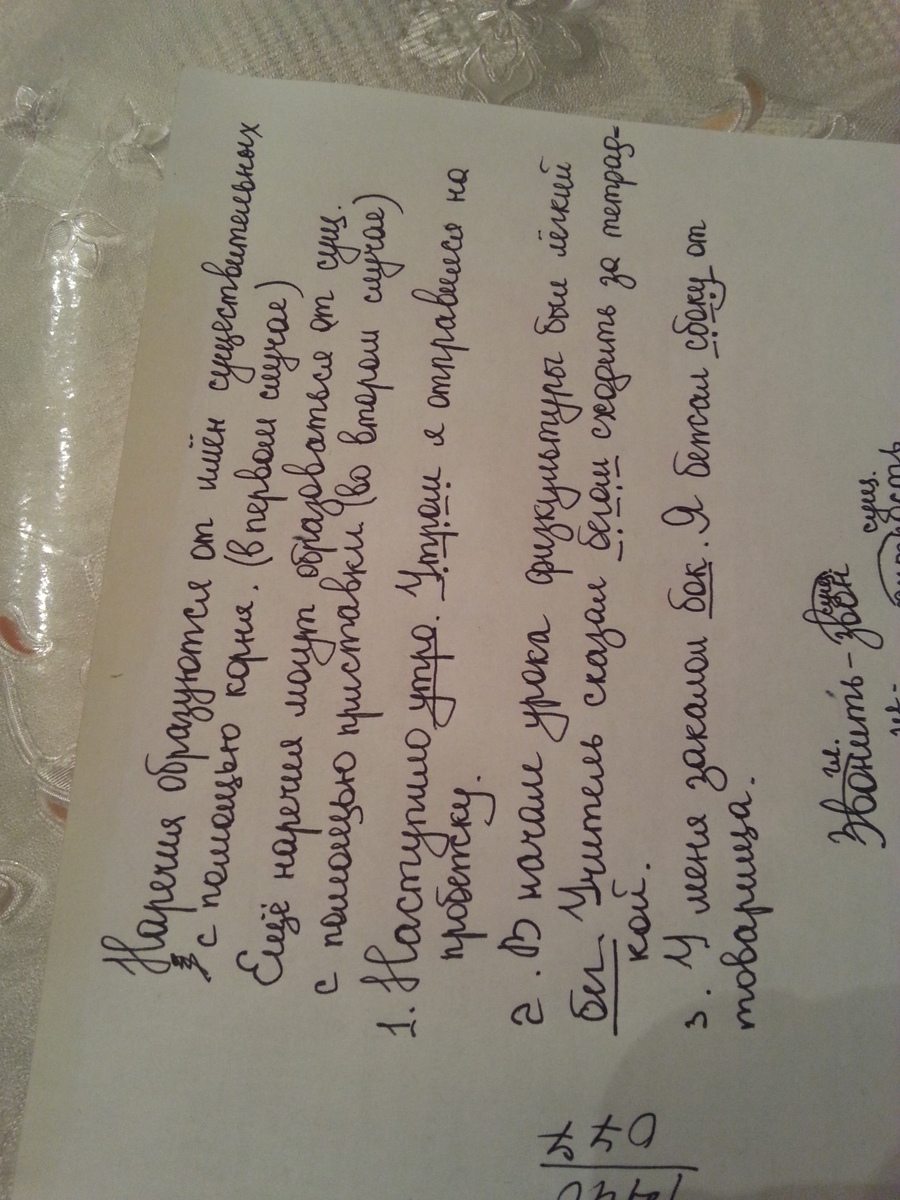 Наречия образуются от имён существительных
с помощью корня. (в первом случае)
Ещё наречия могут образоваться от сущ.
с помощью приставки (во втором случае)
1. Наступило утро. Утром я отправился на
пробежку.
2. В начале урока физкультуры был лёгкий
бег. Учитель сказал бегом сходить за тетрад-
кой.
3. У меня заколол бок. Я бежал сбоку от
товарища.
гл. сущ.
Звонить - звон
сущ.